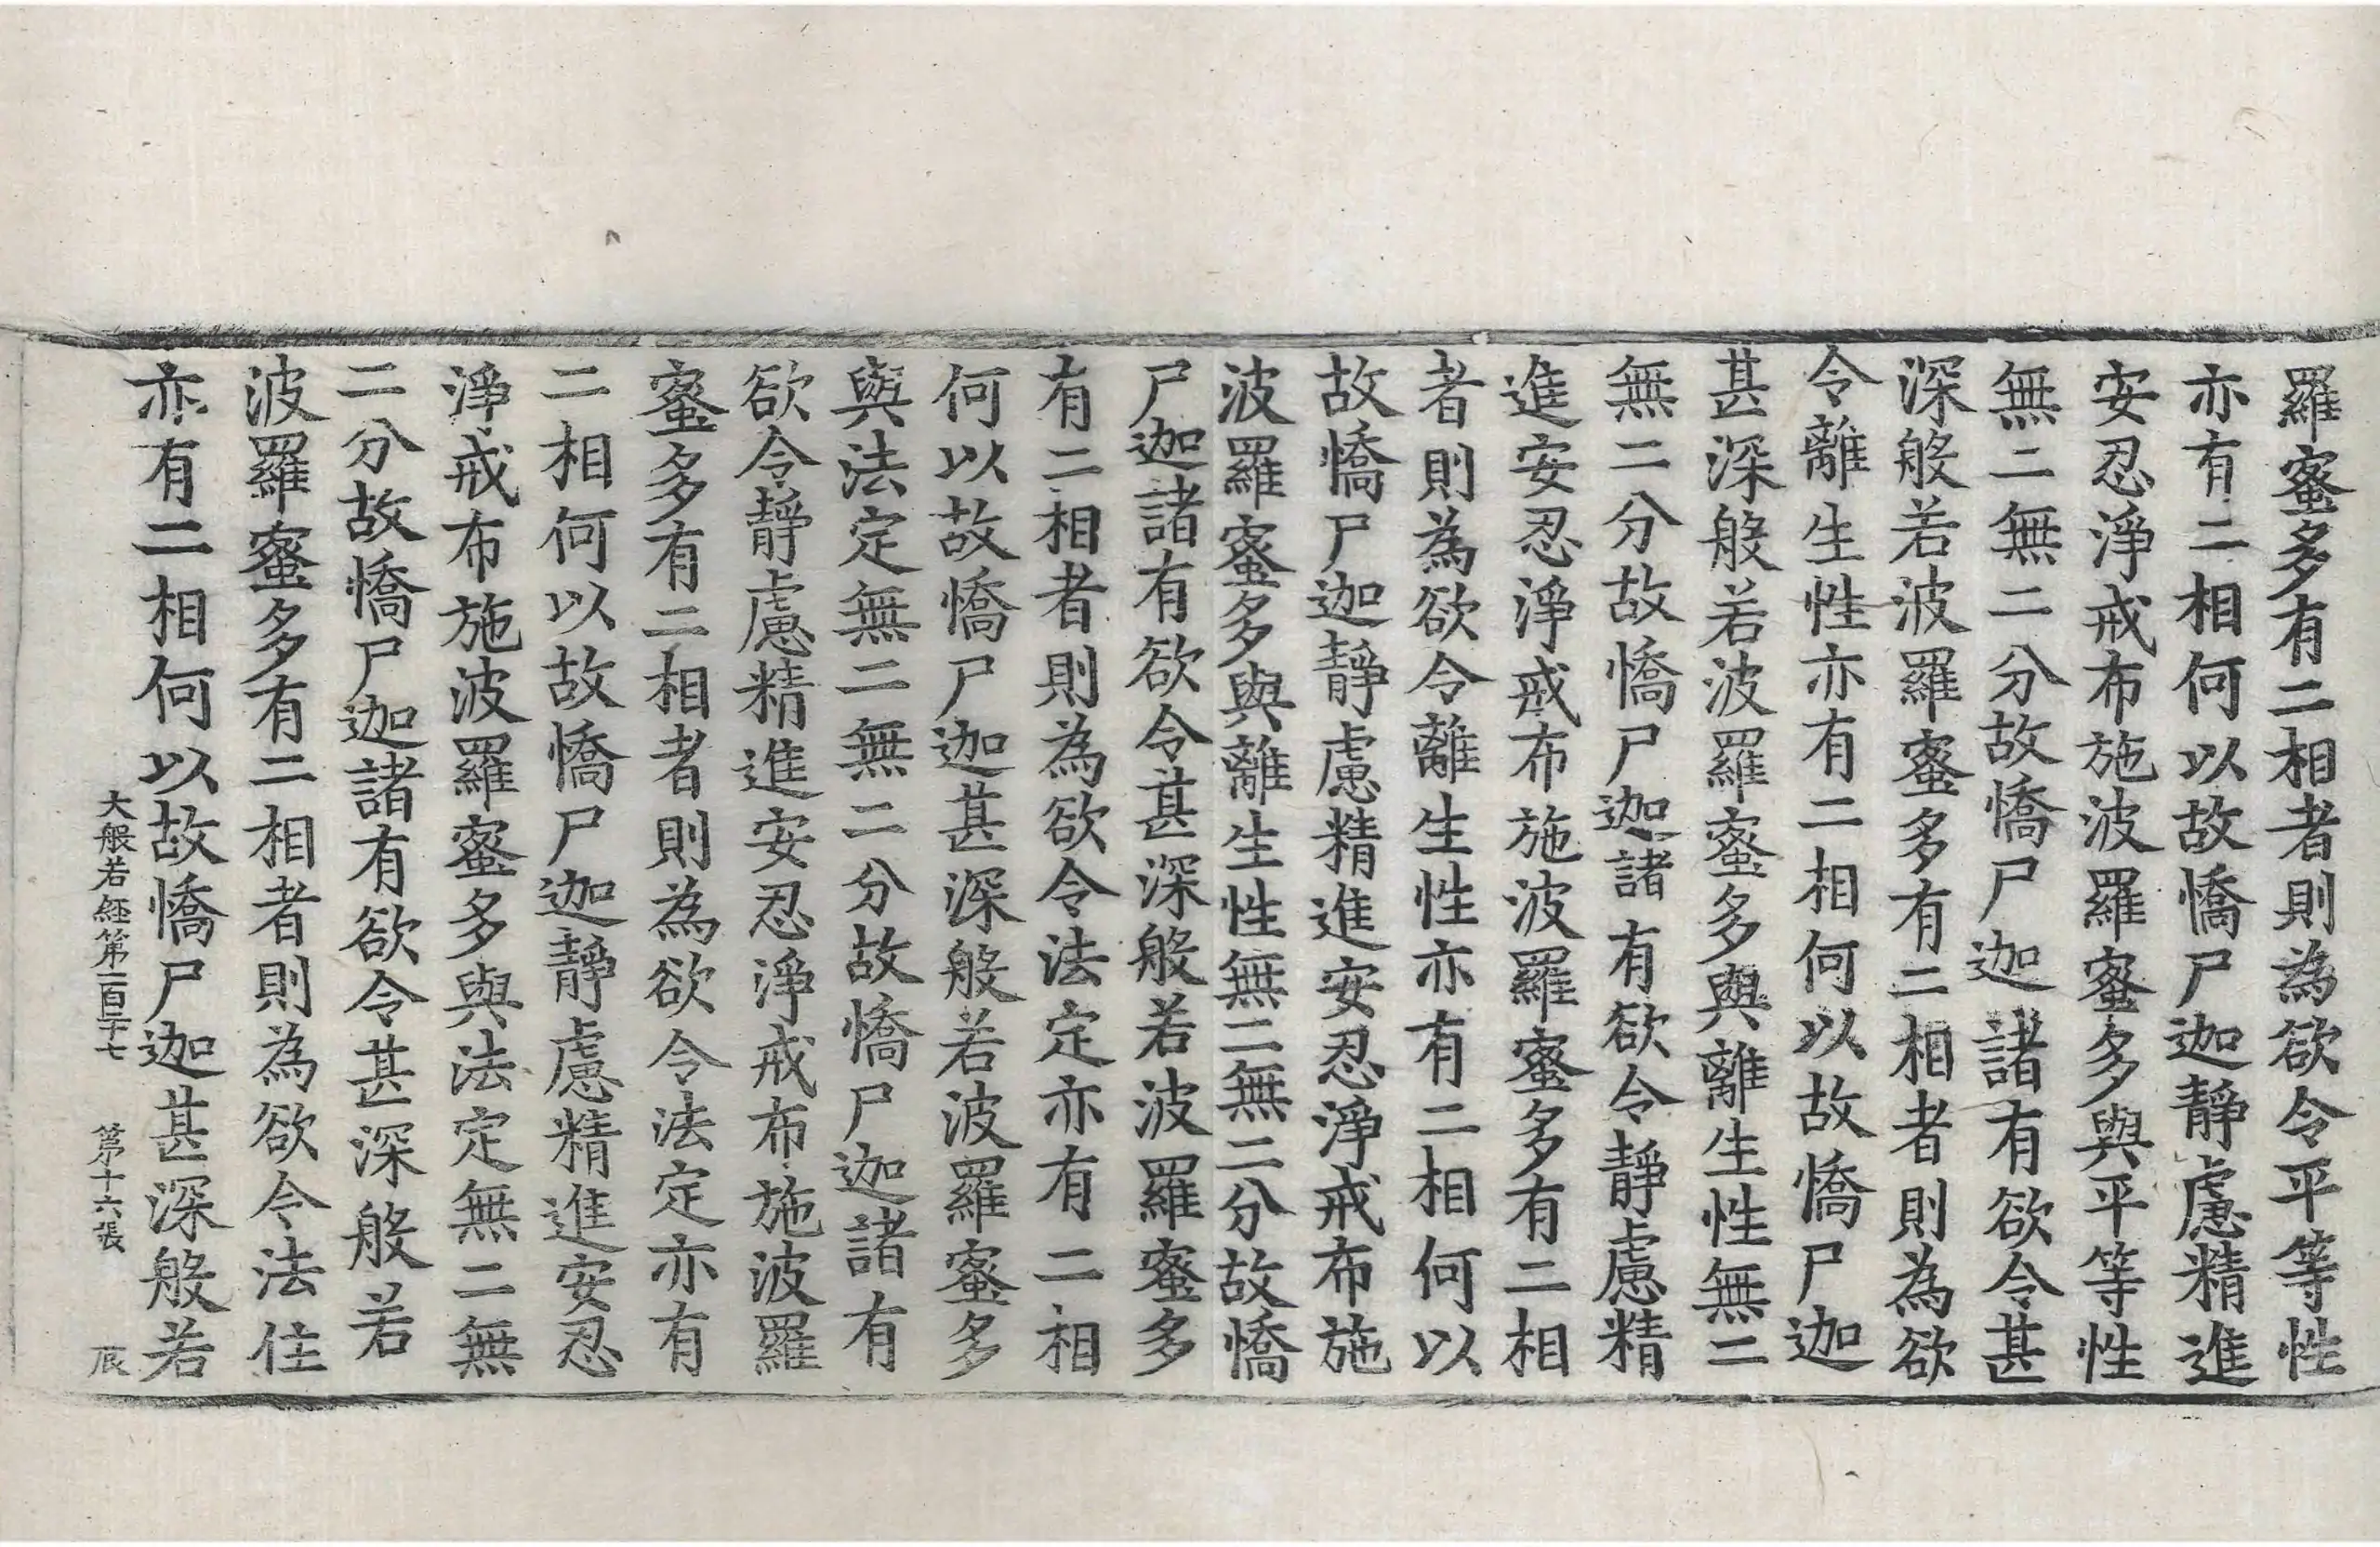 羅蜜多有二相者則為欲令平等性
亦有二相何以故憍尸迦靜慮精進
安忍淨戒布施波羅蜜多與平等性
無二無二分故憍尸迦諸有欲令甚
深般若波羅蜜多有二相者則為欲
令離生性亦有二相何以故憍尸迦
甚深般若波羅蜜多與離生性無二
無二分故憍尸迦諸有欲令靜慮精
進安忍淨戒布施波羅蜜多有二相
者則為欲令離生性亦有二相何以
故憍尸迦靜慮精進安忍淨戒布施
波羅蜜多與離生性無二無二分故憍
尸迦諸有欲令甚深般若波羅蜜多
有二相者則為欲令法定亦有二相
何以故憍尸迦甚深般若波羅蜜多
與法定無二無二分故憍尸迦諸有
欲令靜慮精進安忍淨戒布施波羅
蜜多有二相者則為欲令法定亦有
二相何以故憍尸迦靜慮精進安忍
淨戒布施波羅蜜多與法定無二無
二分故憍尸迦諸有欲令甚深般若
波羅蜜多有二相者則為欲令法住
亦有二相何以故憍尸迦甚深般若
大般若經第二百九十七 第十六張 辰